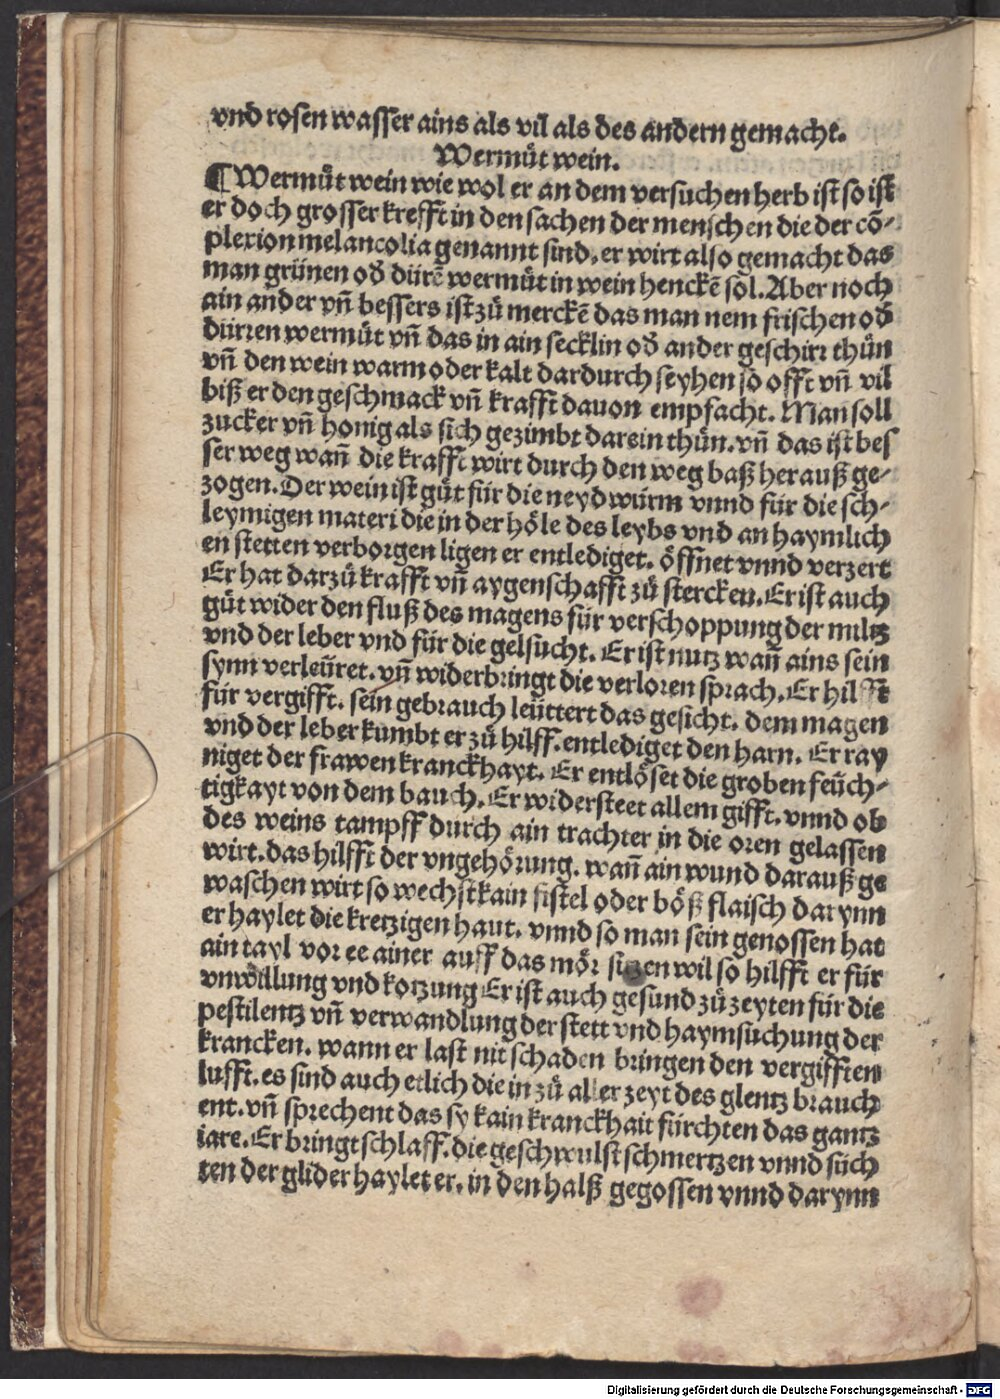 vnd rosen wasser ains als vil als des andern gemacht.
Wermůt wein.
¶ Wermůt wein wie wol er an dem versuchen herb ist so ist
er doch grosser krefft in den sachen der menschen die der cō-
plexion melancolia genannt sind, er wirt also gemacht das
man grünen od̄ dürrē wermůt in wein henckē sol. Aber noch
ain ander vn̄ bessers ist zů merckē das man nem frischen od̄
dürren wermůt vn̄ das in ain secklin od̄ ander geschirr thůn
vn̄ den wein warm oder kalt dardurch seyhen so offt vn̄ vil
biß er den geschmack vn̄ krafft dauon empfacht. Man soll
zucker vn̄ honig als sich gezimbt darein thůn. vn̄ das ist bes
ser weg wan̄ die krafft wirt durch den weg baß herauß ge-
zogen. Der wein ist gůt für die neydwürm vnnd für die sch-
leymigen materi die in der höle des leybs vnd an haymlich
en stetten verborgen ligen er entlediget. öffnet vnnd verzert
Er hat darzů krafft vn̄ aygenschafft zů stercken. Er ist auch
gůt wider den fluß des magens für verschoppung der miltz
vnd der leber vnd für die gelsucht. Er ist nutz wan̄ ains sein
synn verleüret. vn̄ widerbringt die verloren sprach. Er hilfft
für vergifft. sein gebrauch leüttert das gesicht. dem magen
vnd der leber kumbt er zů hilff. entlediget den harn. Er ray
niget der frawen kranckhayt. Er entlöset die groben feüch-
tigkayt von dem bauch. Er widersteet allem gifft. vnnd ob
des weins tampff durch ain trachter in die oren gelassen
wirt. das hilfft der vngehörung. wan̄ ain wund darauß ge
waschen wirt so wechst kain fistel oder böß flaisch darynn
er haylet die kretzigen haut. vnnd so man sein genossen hat
ain tayl vor ee ainer auff das mör sitzen wil so hilfft er für
vnwillung vnd kotzung Er ist auch gesund zů zeyten für die
pestilentz vn̄ verwandlung der stett vnd haymsůchung der
krancken. wann er last nit schaden bringen den vergifften
lufft. es sind auch etlich die in zů aller zeyt des glentz brauch
ent. vn̄ sprechent das sy kain kranckhait fürchten das gantz
iare. Er bringt schlaff. die geschwulst schmertzen vnnd süch
ten der glider haylet er. in den halß gegossen vnnd darynn
Digitalisierung gefördert durch die Deutsche Forschungsgemeinschaft - DFG